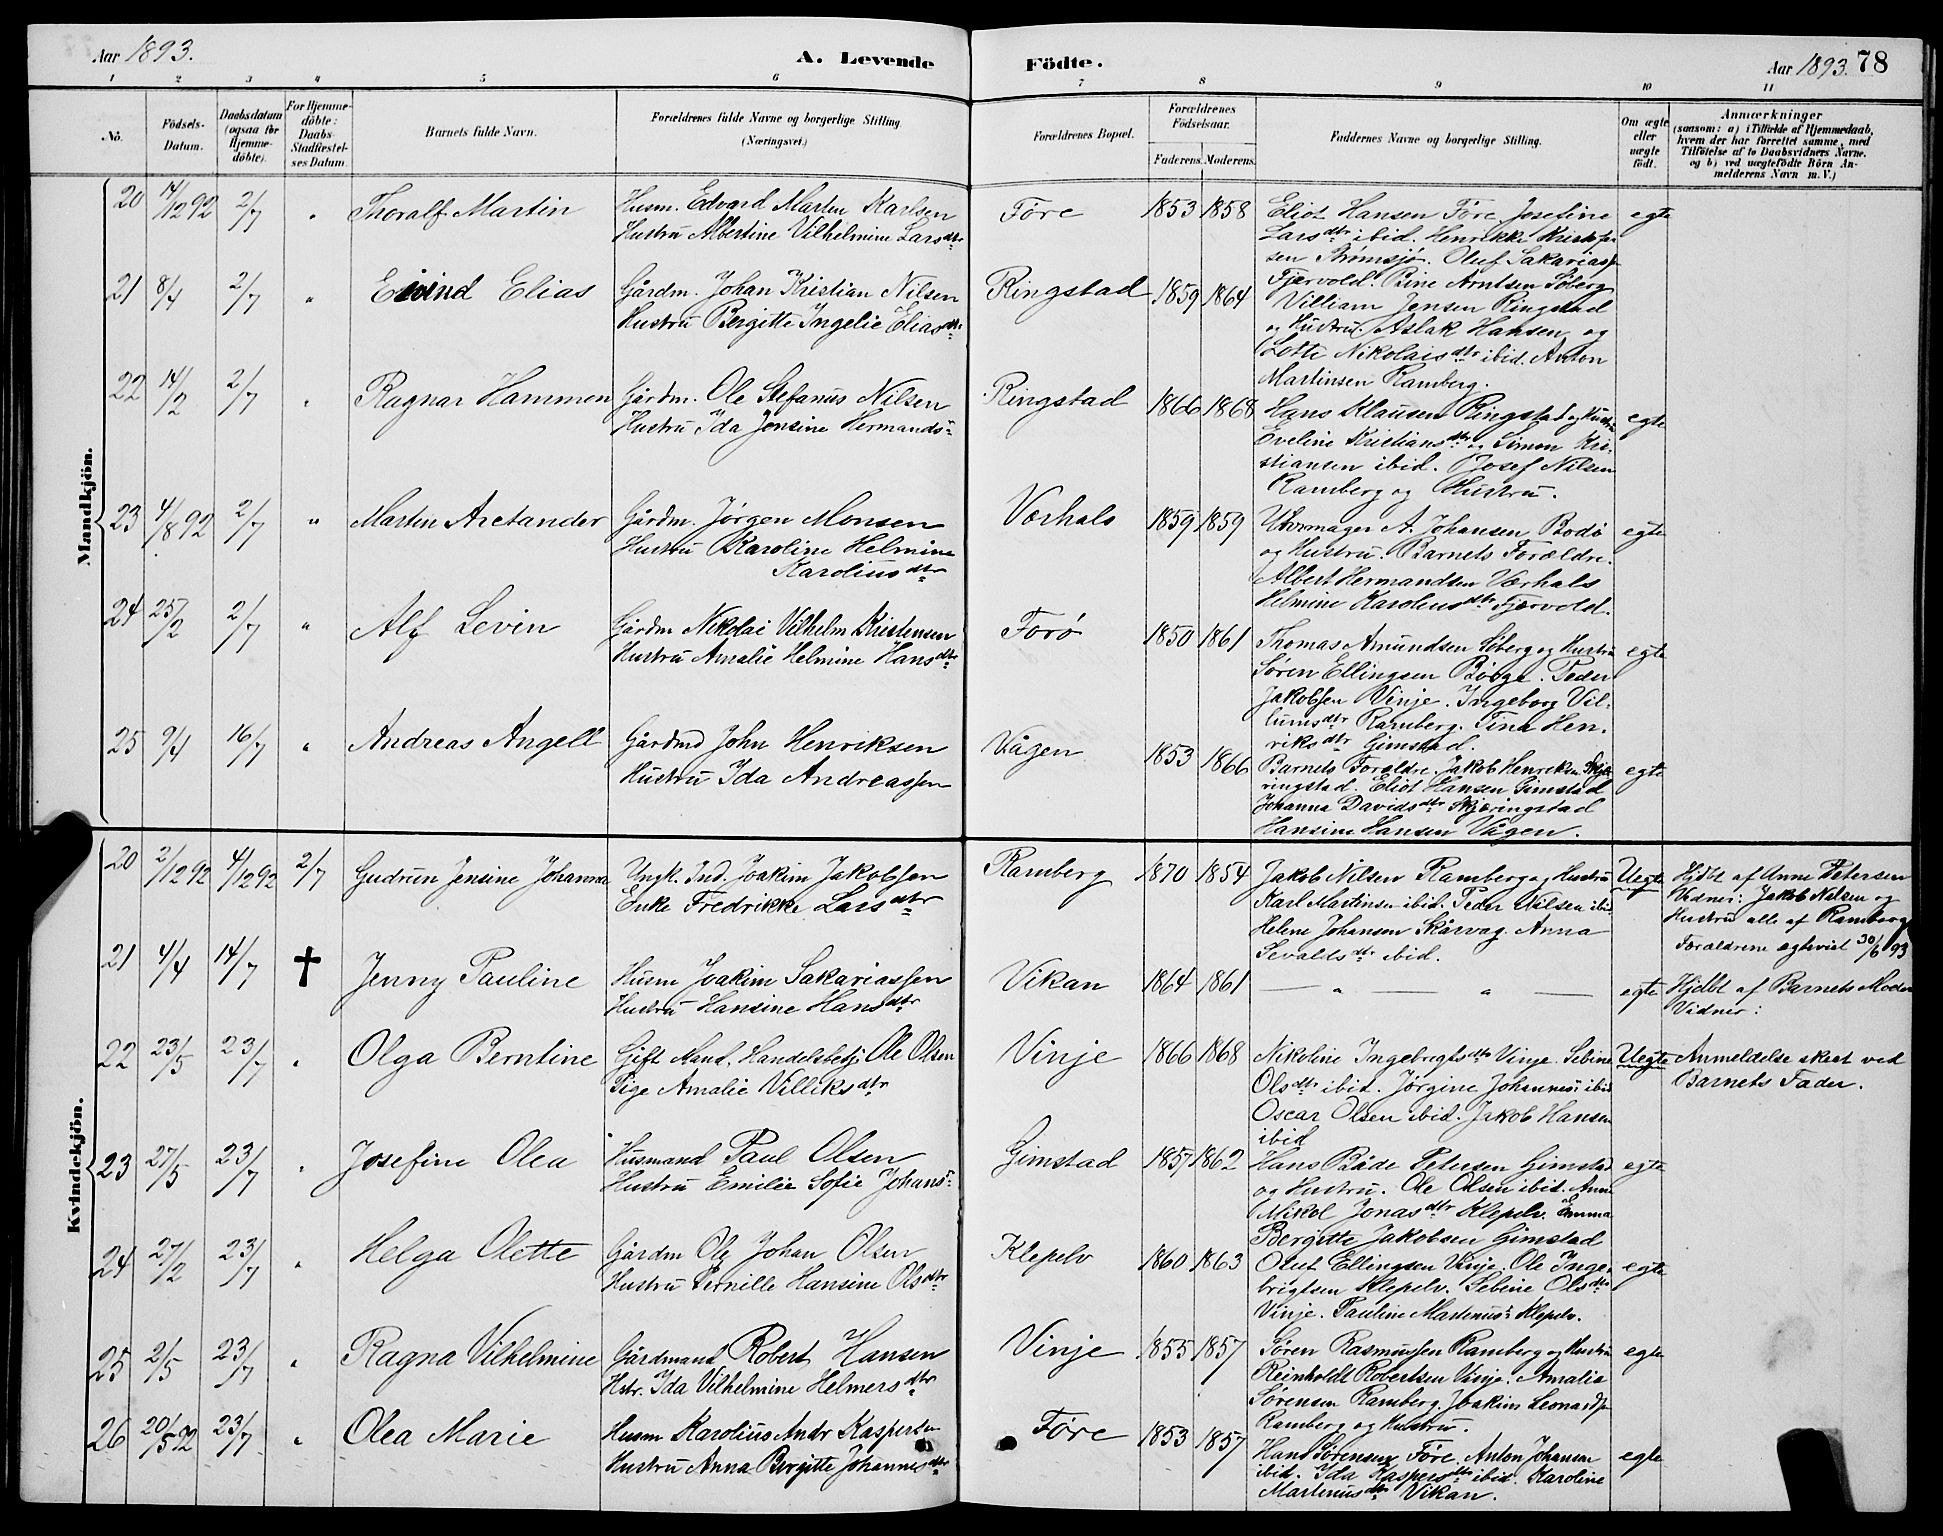 Aar 1893.
A. Levende
Födte.
Aar 1893. 78
1 2 3 4 5 6 7 8 9 10 11
No.
Födsels-Datum.
Daabsdatum (ogsaa for Hjemme-döbte).
For Hjemme-döbte: Daabs-Stadfæstel-ses Datum.
Barnets fulde Navn.
Forældrenes fulde Navne og borgerlige Stilling. (Næringsvei.)
Forældrenes Bopæl.
Forældrenes Födselsaar.
Faderens. Moderens.
Faddernes Navne og borgerlige Stilling.
Om ægte eller uægte födt.
Anmærkninger
(saasom: a) i Tilfælde af Hjemmedaab,
hvem der har forrettet samme, med
Tilföielse af to Daabsvidners Navne.
og b) ved uægtefödte Börn An-
melderens Navn m. V.)
Mandkjön.
20 14/12 92 2/7 " Thoralf Martin
Husm. Edvard Martin Karlsen
Hustru Albertine Vilhelmine Larsdtr
Före 1853 1858
Eliot Hansen Före Josefine
Larsdtr ibid. Henrikke Kristofer
sen Strömsjö. Oluf Sakariass.
Fjærvold. Pine Arntsen Söberg
egte
21 8/4 2/7 " Eivind Elias
Gårdm. Johan Kristian Nilsen
Hustru Bergitte Ingelie Eliasdtr
Ringstad 1859 1864
Villiam Jensen Ringstad
og Hustru. Aslak Hansen og
Lotte Nikolaisdtr ibid. Anton
Martinsen Ramberg.
22 14/2 2/7 " Ragnar Hammen
Gårdm. Ole Stefanus Nilsen
Hustru Ida Jensine Hermands:
Ringstad 1866 1868
Hans Klausen Ringstad og Hustru
Eveline Kristiansdtr og Simon Kri-
stiansen ibid. Josef Nilsen
Ramberg og Hustru.
egte
23 4/8 92 2/7 " Martin Aretander
Gårdm. Jörgen Monsen
Hustru Karoline Helmine
Karoliusdtr
Værhals 1859 1859
Uhrmager A. Johansen Bodö
og Hustru. Barnets Forældre.
Albert Hermandsen Værhals
Helmine Karoliusdtr Fjærvold.
egte
24 25/2 2/7 " Alf Levin
Gårdm Nikolai Vilhelm Kristensen
Hustru Amalie Helmine Hansdtr
Forö 1850 1861
Thomas Amundsen Söberg og Hustru
Sören Ellingsen Böoge. Peder
Jakobsen Vinje. Ingeborg Vil-
lumsdtr Ramberg. Tina Hen-
riksdtr Gimstad.
egte
25 9/4 16/7 " Andreas Angell
Gårdmd John Henriksen
Hustru Ida Andreassen
Vågen 1853 1866
Barnets Forældre. Jakob Henriksen Skjæ
ringstad. Eliot Hansen Gimstad
Johanna Davidsdtr Skjæringstad
Hansine Hansen Vågen.
egte
Kvindekjön.
20 2/12 92 4/12 92 2/7 Gudrun Jensine Johanna
Ungk. Ind. Joakim Jakobsen
Enke Fredrikke Larsdtr
Ramberg 1870 1854
Jakob Nilsen Ramberg og Hustru
Karl Martinsen ibid. Peder Nilsen ibid
Helene Johansen Skårvag. Anna
Sevaldsdtr ibid.
Uegte
Hjdbt af Anne Petersen
Vidner: Jakob Nilsen og
Hustru alle af Ramberg
Forældrene egteviet 30/6 93
21 4/4 14/7 † Jenny Pauline
Husm Joakim Sakariassen
Hustru Hansine Hansdtr
Vikan 1864 1861
— " — " —
egte
Hjdbt af Barnets Moder
Vidner:
22 23/5 23/7 " Olga Berntine
Gift Mand, Handelsbetj. Ole Olsen
Pige Amalie Villiksdtr
Vinje 1866 1868
Nikoline Ingebrigtsdtr Vinje. Sebine
Olsdtr ibid. Jörgine Johannes: ibid
Oscar Olsen ibid. Jakob Hansen
ibid
Uegte
Anmeldelse skeet ved
Barnets Fader.
23 27/5 23/7 " Josefine Olea
Husmand Paul Olsen
Hustru Emilie Sofie Johans:
Gimstad 1857 1862
Hans Både Petersen Gimstad
og Hustru. Ole Olsen ibid. Anne
Mikol Jonasdtr Klepelv. Emma
Bergitte Jakobsen Gimstad
egte
24 27/2 23/7 " Helga Olette
Gårdm Ole Johan Olsen
Hustru Pernille Hansine Olsdtr
Klepelv 1860 1863
Olut Ellingsen Vinje. Ole Inge-
brigtsen Klepelv. Sebine Olsdtr
Vinje. Pauline Martinus: Klepelv.
egte
25 2/5 23/7 " Ragna Vilhelmine
Gårdmand Robert Hansen
Hstr. Ida Vilhelmine Helmersdtr
Vinje 1855 1857
Sören Rasmussen Ramberg og Hustru
Reinholdt Robertsen Vinje. Amalia
Sörensen Ramberg. Joakim Leonards.
Ramberg og Hustru.
egte
26 20/5 92 23/7 " Olea Marie
Husm Karolius Andr Kaspersen
Hustru Anna Bergitte Johannesdtr
Före 1853 1857
Hans Sörensen Före. Anton Johansen
ibid. Ida Kaspersdtr ibid. Karoline
Martinusdtr Vikan.
egte